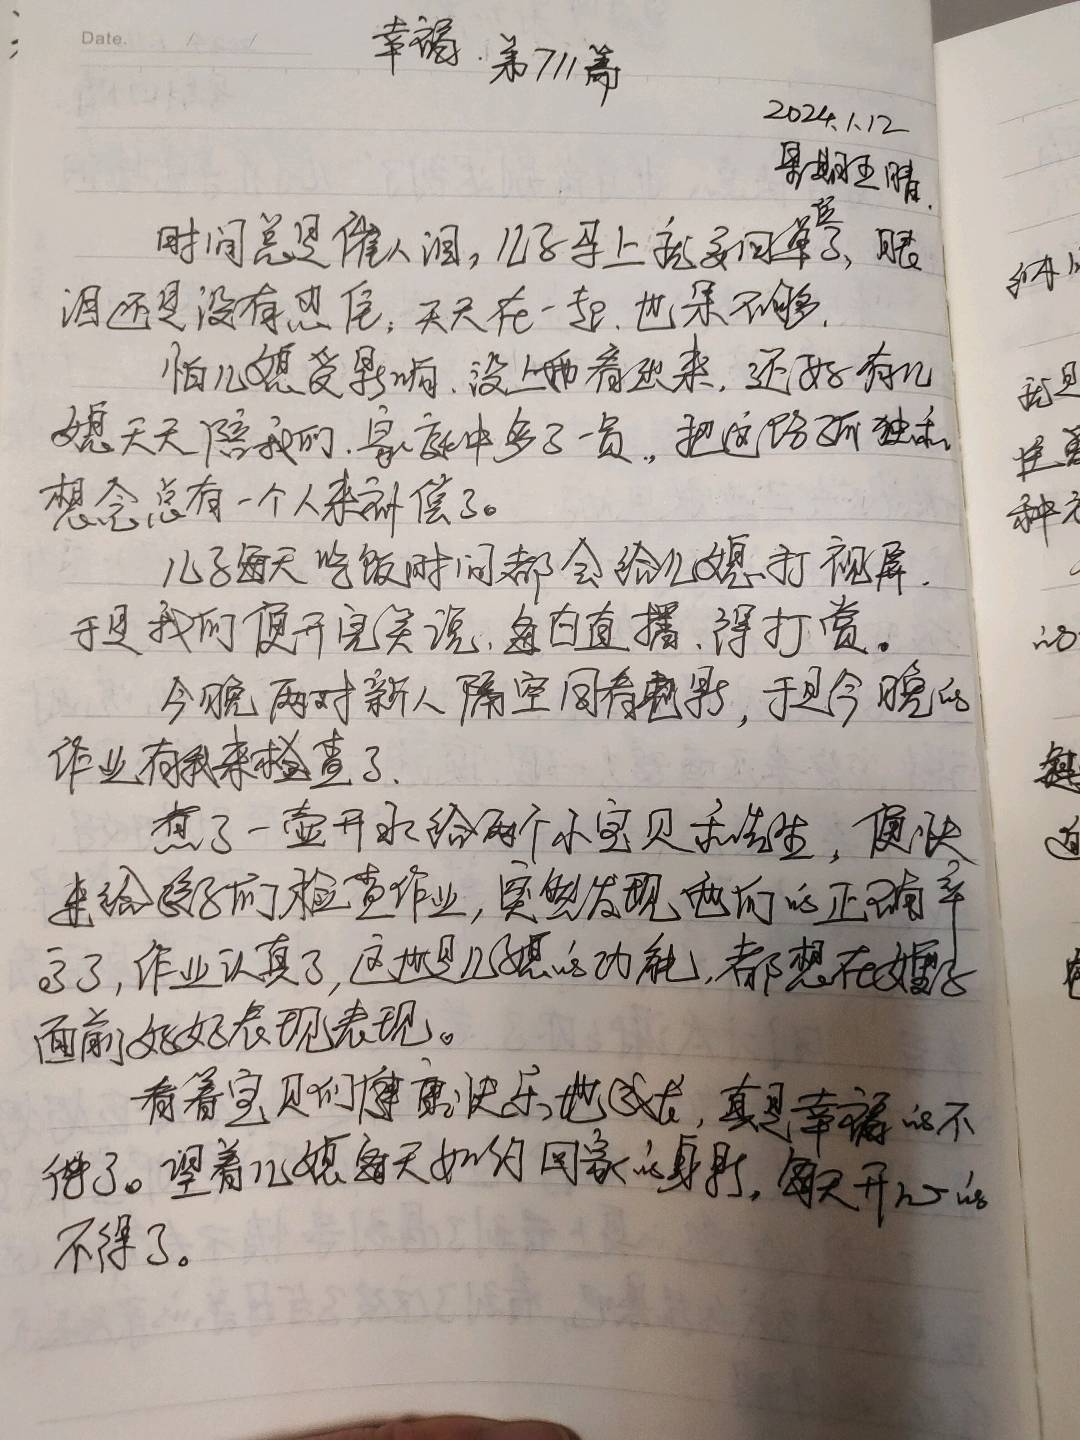 Date. / /
幸福. 第711篇
2024.1.12
星期五 晴.
时间总是催人泪，儿子马上就要回单位了，眼
泪还是没有忍住，天天在一起、也呆不够.
怕儿媳受影响、没上西看起来，还好有儿
媳天天陪我们、家庭中多了一员，把这份孤独和
想念总有一个人来补偿了。
儿子每天吃饭时间都会给儿媳打视屏.
于是我们便开完笑说、每日直播、得打赏。
今晚两对新人隔空同看电影，于是今晚的
作业有我来检查了.
烧了一壶开水给两个小宝贝和先生，便快
速给孩子们检查作业，突然发现他们的正确率
高了，作业认真了，这也是儿媳的功能，都想在嫂子
面前好好表现表现。
看着宝贝们健康快乐地成长，真是幸福的不
得了。望着儿媳每天如约回家的身影，每天开心的
不得了。
就是
种
的